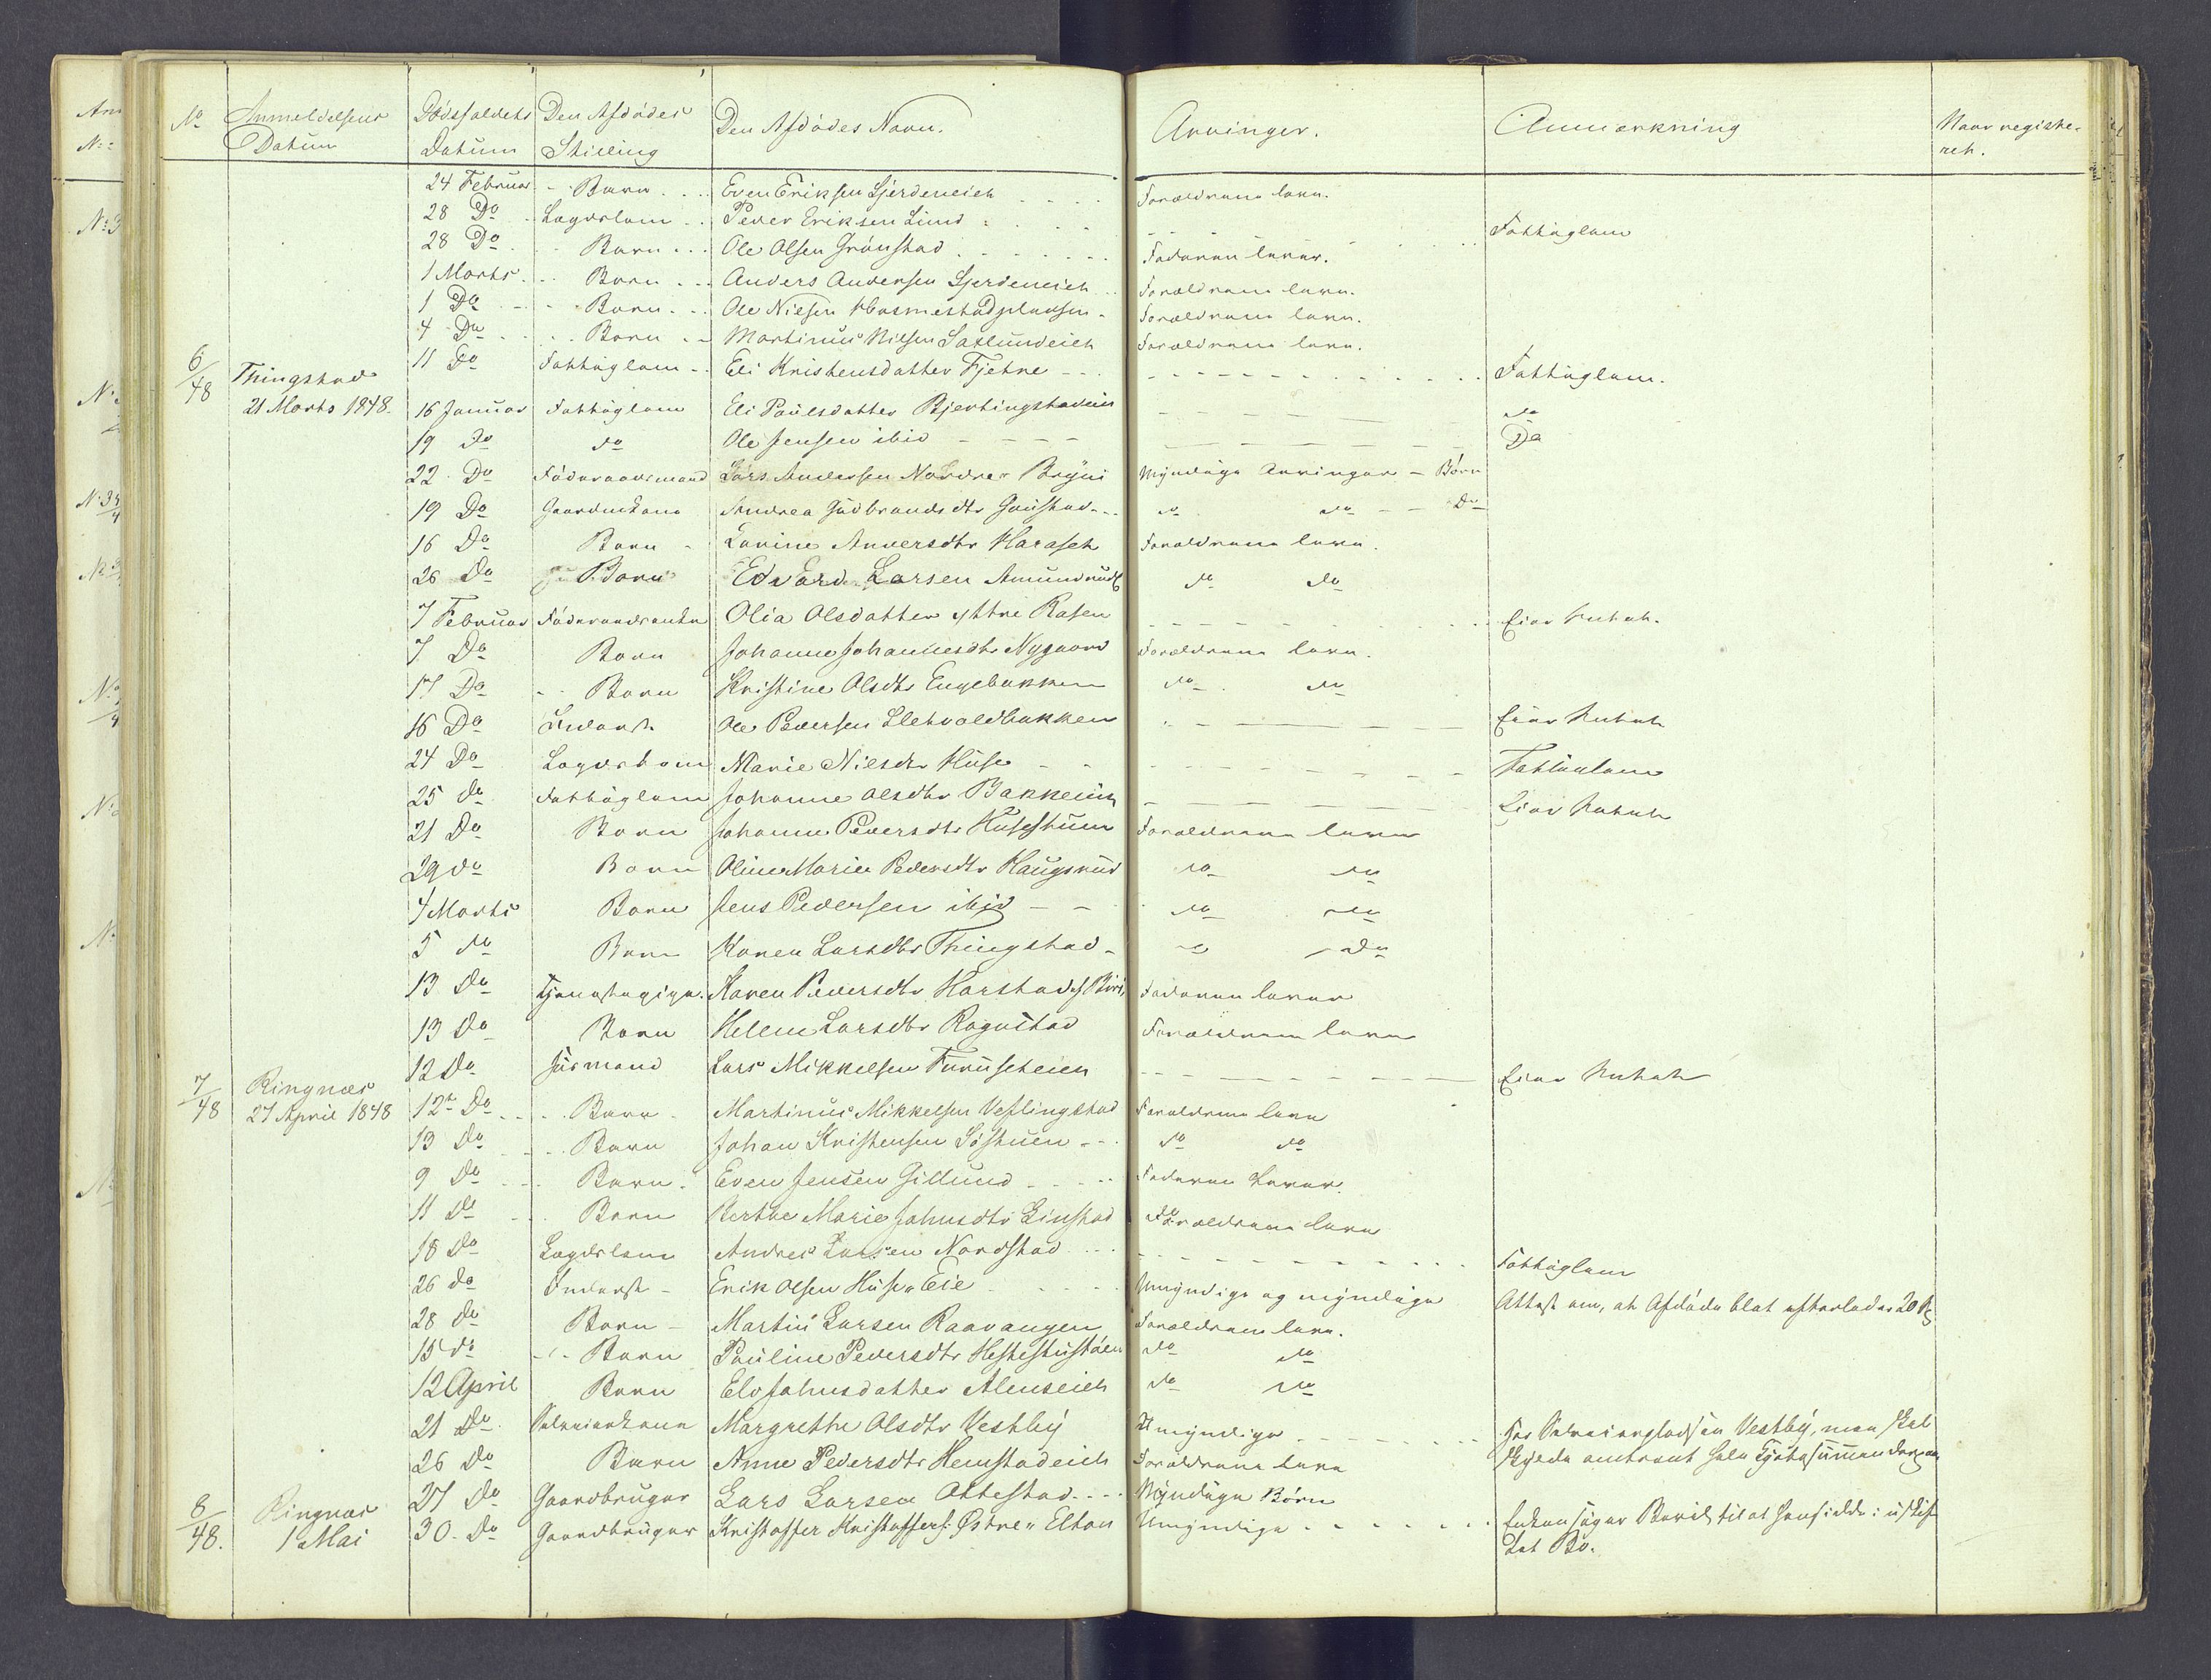 No Anmeldelsens Datum Dødsfaldets Datum Den Afdødes Stilling Den Afdødes Navn. Arvinger. Anmærkning Naar registreret.
24 Februar - Barn Even Eriksen Gjerdeneiet Forældrene leve.
28 Do Lægdslem Peder Eriksen Lund Fattiglem
28 Do Barn Ole Olsen Grønstad Faderen lever.
1 Marts Barn Anders Andersen Gjerdeneiet Forældrene leve.
1 Do Barn Ole Nielsen Forældrene leve.
4 Do Barn Martinus Nilsen Saxlundeiet Forældrene leve.
11 Do Fattiglem Eli Kristensdatter Fjetre Fattiglem.
6/48 Thingstad 21 Marts 1848. 16 Januar Fattiglem Eli Paulsdatter do
19 Do do Ole Jensen ibid Do
22 Do Føderaadsmand Lars Andersen Nordre Bryni Myndige Arvinger - Børn
19 Do Gaardmkone Andrea Gudbrandsdtr Gaustad do do Do
16 Do Barn Lovine Andersdtr Haraset Forældrene leve.
26 Do Barn Edvard Larsen Amundrud do do
7 Februar Føderaadsenke Olia Olsdatter yttre Rasen Eier Intet.
7 Do Barn Johanne Johannesdtr Nygaard Forældrene leve.
17 Do Barn Kristine Olsdtr Engebakken do do
16 Do Inderst Ole Pedersen Sletvoldbakken Eier Intet
24 Do Lægdslem Marie Nielsdtr Huse Fattiglem
25 do Fattiglem Johanne Olsdtr Bakkeeiet Eier Intet
21 Do Barn Johanne Pedersdtr Husestuen Forældrene leve
29 do Barn Oline Marie Pedersdtr Haugsrud do do
4 Marts Barn Jens Pedersen ibid do do
5 do Barn Karen Larsdtr Thingstad do
13 Do Tjenestepige Karen Pedersdtr Harstad Faderen lever
13 Do Barn Helene Larsdtr Rognstad Forældrene leve
12 Do Husmand Lars Mikkelsen Furuseteien Eier Intet
7/48 Ringnæs 27 April 1848 12te Do Barn Martinus Mikkelsen Veflingstad Forældrene leve
13 Do Barn Johan Kristensen Søstuen do do
9 Do Barn Even Jensen Gillund Faderen Lever.
11 Do Barn Berthe Marie Johnsdtr Einstad Forældrene leve
18 Do Lægdslem Andreas Larsen Nordstad Fattiglem
26 do Inderst Erik Olsen Huse Eie Umyndige og myndige Attest om, at Afdøde blot efterlader 20
28 do Barn Martin Larsen Raavangen Forældrene leve.
15 do Barn Pauline Pedersdtr do do
12 April Barn Johnsdatter do do
21 Do Selveierkone Margrethe Olsdtr Vestby Umyndige Vestby, men skal
26 Do Barn Anne Pedersdtr Hemstadeiet Forældrene leve skylde omtrent hele Kjøbesummen
27 Do Gaardbruger Lars Larsen Attestad Myndige Børn
8/48. Ringnæs 1 Mai 30. Do Gaardbruger Kristoffer Kristoffers. Østre Elton Umyndige Enken søger Bevil til at hensidde i uskif
tet Bo.